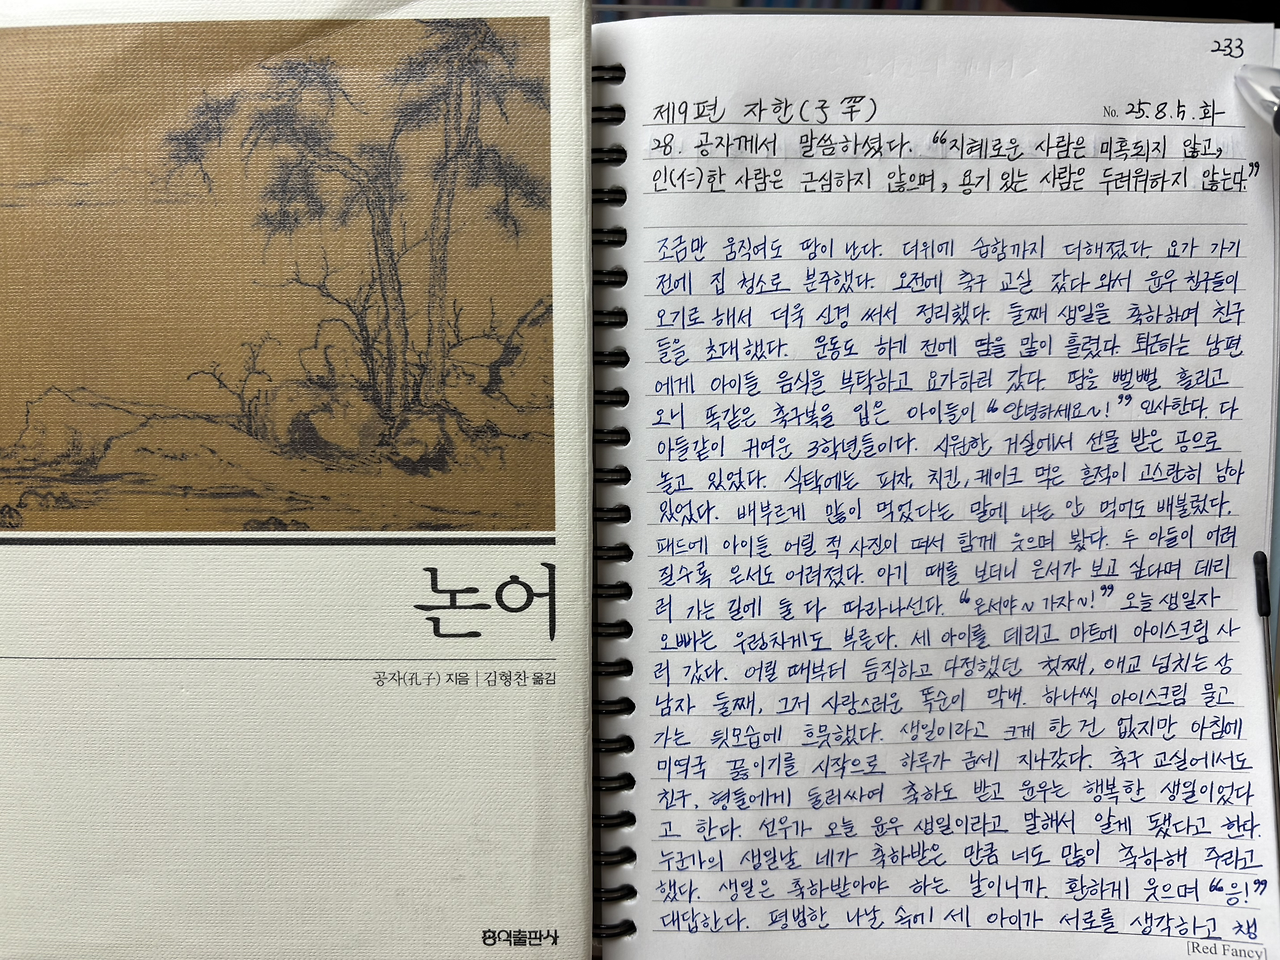 논어
공자(孔子) 지음 | 김형찬 옮김
홍익출판사
233
제9편 자한(子罕)
No. 25.8.5.화
28. 공자께서 말씀하셨다. "지혜로운 사람은 미혹되지 않고,
인(仁)한 사람은 근심하지 않으며, 용기 있는 사람은 두려워하지 않는다."
조금만 움직여도 땀이 난다. 더위에 습함까지 더해졌다. 요가 가기
전에 집 청소로 분주했다. 오전에 축구 교실 갔다 와서 윤우 친구들이
오기로 해서 더욱 신경 써서 정리했다. 둘째 생일을 축하하며 친구
들을 초대했다. 운동도 하기 전에 땀을 많이 흘렸다. 퇴근하는 남편
에게 아이들 음식을 부탁하고 요가하러 갔다. 땀을 뻘뻘 흘리고
오니 똑같은 축구복을 입은 아이들이 "안녕하세요~!" 인사한다. 다
아들같이 귀여운 3학년들이다. 시원한 거실에서 선물 받은 공으로
놀고 있었다. 식탁에는 피자, 치킨, 케이크 먹은 흔적이 고스란히 남아
있었다. 배부르게 많이 먹었다는 말에 나는 안 먹어도 배불렀다.
패드에 아이들 어릴 적 사진이 떠서 함께 웃으며 봤다. 두 아들이 어려
질수록 은서도 어려졌다. 아기 때를 보더니 은서가 보고 싶다며 데리
러 가는 길에 둘 다 따라나선다. "은서야~ 가자~!" 오늘 생일자
오빠는 우렁차게도 부른다. 세 아이를 데리고 마트에 아이스크림 사
러 갔다. 어릴 때부터 듬직하고 다정했던 첫째, 애교 넘치는 상
남자 둘째, 그저 사랑스러운 똑순이 막내. 하나씩 아이스크림 물고
가는 뒷모습에 흐뭇했다. 생일이라고 크게 한 건 없지만 아침에
미역국 끓이기를 시작으로 하루가 금세 지나갔다. 축구 교실에서도
친구, 형들에게 둘러싸여 축하도 받고 윤우는 행복한 생일이었다
고 한다. 선우가 오늘 윤우 생일이라고 말해서 알게 됐다고 한다.
누군가의 생일날 네가 축하받은 만큼 너도 많이 축하해 주라고
했다. 생일은 축하받아야 하는 날이니까. 환하게 웃으며 "응!"
대답한다. 평범한 나날 속에 세 아이가 서로를 생각하고 챙
[Red Fancy]